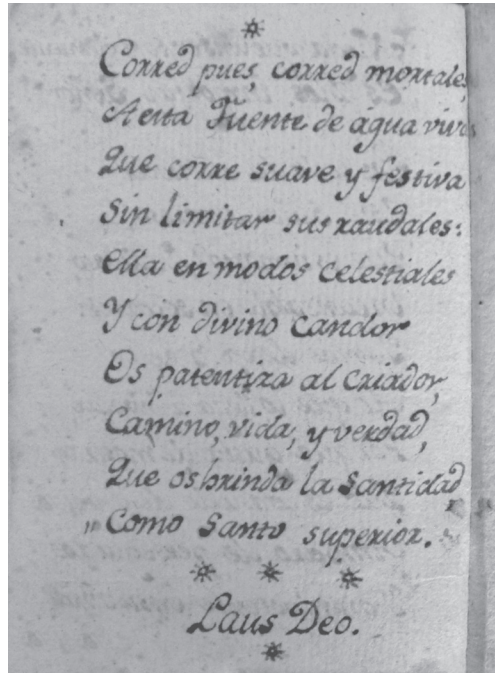 Corred pues, corred mortales,
A esta Fuente de agua viva
Que corre suave y festiva
Sin limitar sus raudales:
Ella en modos Celestiales
Y con divino Candor
Os patentiza al Criador,
Camino, vida, y verdad,
Que os brinda la Santidad
„ Como Santo superior.
Laus Deo.